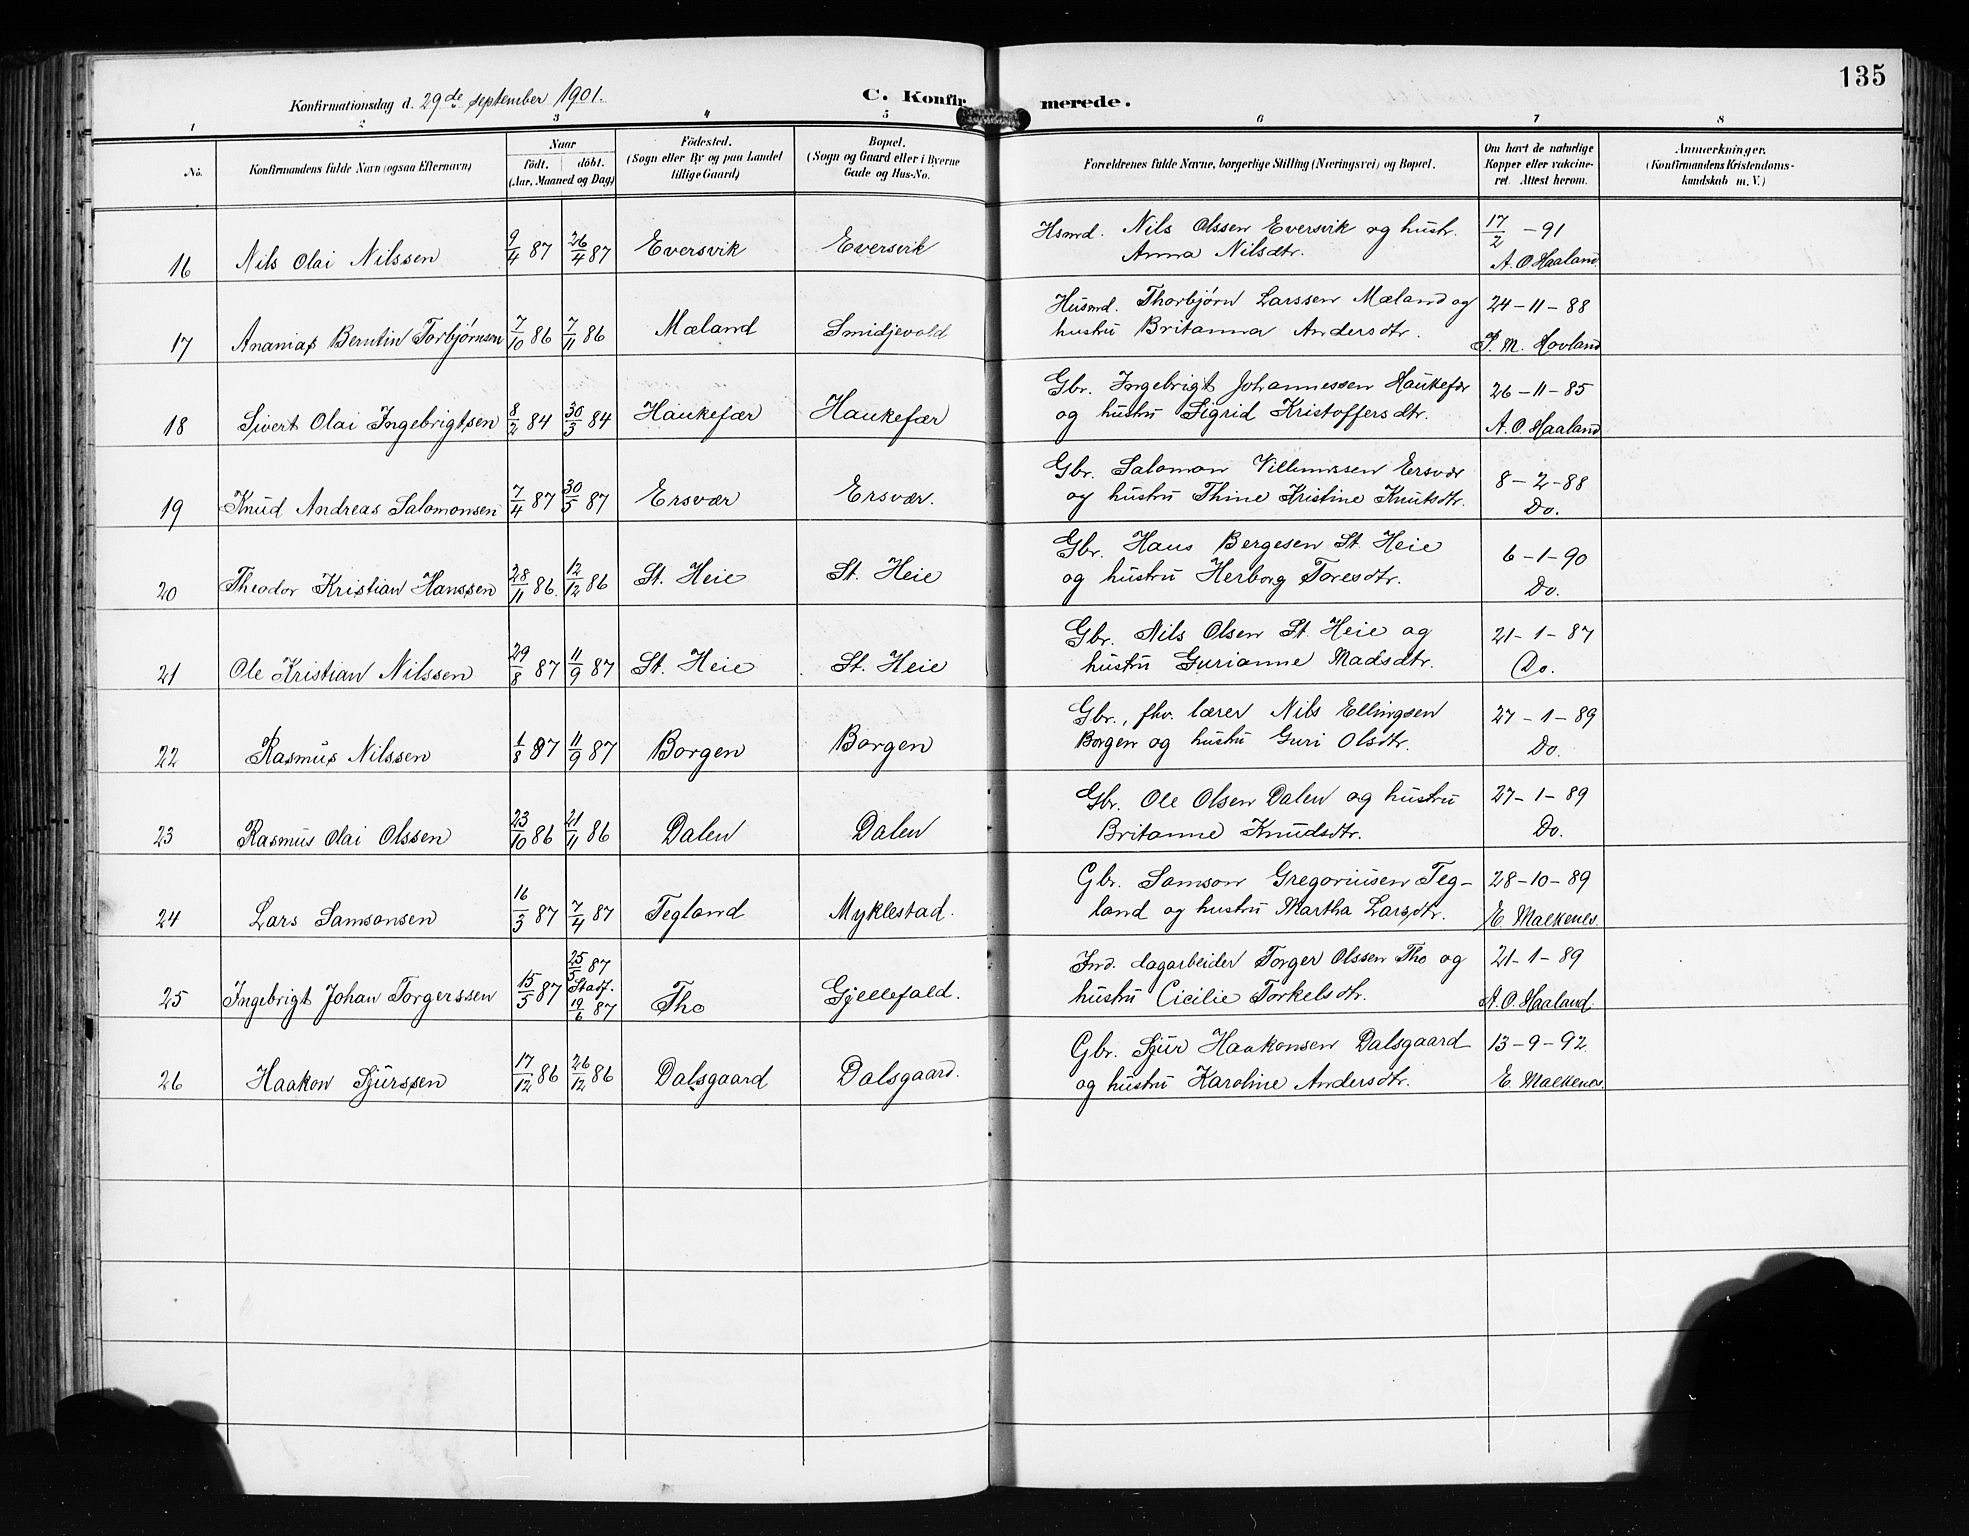 135
Konfirmationsdag d. 29de september 1901.
C. Konfirmerede.
1 2 3 4 5 6 7 8
No.
Konfirmandens fulde Navn (ogsaa Efternavn)
Naar
födt. döbt.
(Aar, Maaned og Dag)
Födested.
(Sogn eller By og paa Landet
tillige Gaard)
Bopæl.
(Sogn og Gaard eller i Byerne
Gade og Hus-No.
Forældrenes fulde Navne, borgerlige Stilling (Næringsvei) og Bopæl.
Om havt de naturlige
Kopper eller vakcine-
ret. Attest herom.
Anmærkninger.
(Konfirmandens Kristendoms-
kundskab m. V.)
16 Nils Olai Nilssen 9/4 87 26/4 87 Eversvik Eversvik Hsmd. Nils Olssen Eversvik og hustr.
Anna Nilsdtr.
17/2 -91
A. O. Haaland
17 Ananias Berntin Torbjørnsen 7/10 86 7/11 86 Mæland Smidjevold Husmd. Thorbjørn Larssen Mæland og
hustru Britanna Andersdtr.
24-11-88
P. M. Hovland
18 Sivert Olai Ingebrigtsen 8/2 84 30/3 84 Haukefær Haukefær Gbr. Ingebrigt Johannessen Haukefær
og hustru Sigrid Kristoffersdtr.
26-11-85
A. O. Haaland
19 Knud Andreas Salomonsen 7/4 87 30/5 87 Ersvær Ersvær. Gbr. Salomon Villumssen Ersvær
og hustru Thine Kristine Knutsdtr.
8-2-88
Do.
20 Theodor Kristian Hanssen 28/11 86. 12/12 86 St. Heie St. Heie Gbr. Hans Bergesen St. Heie
og hustru Herborg Toresdtr.
6-1-90
Do.
21 Ole Kristian Nilssen 29/8 87 11/9 87 St. Heie St. Heie Gbr. Nils Olsen St. Heie og
hustru Gurianne Madsdtr.
21-1-87
Do.
22 Rasmus Nilssen 1/8 87 11/9 87 Borgen Borgen Gbr., fhv. lærer Nils Ellingsen
Borgen og hustru Guri Olsdtr.
27-1-89
Do.
23 Rasmus Olai Olssen 23/10 86 21/11 86 Dalen Dalen Gbr. Ole Olsen Dalen og hustru
Britanne Knudsdtr.
27-1-89
Do.
24 Lars Samsonsen 16/3 87 7/4 87 Tegland Myklestad. Gbr. Samson Gregoriusen Teg-
land og hustru Martha Larsdtr.
28-10-89
E. Malkenes.
25 Ingebrigt Johan Torgerssen 15/5 87 25/5 87
Stadf.
19/6 87
Tho Gjellefald. Ind. dagarbeider Torger Olssen Tho og
hustru Cicilie Torkelsdtr.
21-1-89
A. O. Haaland.
26 Haakon Sjurssen 17/12 86 26/12 86 Dalsgaard Dalsgaard. Gbr. Sjur Haakonsen Dalsgaard
og hustru Karoline Andersdtr.
13-9-92.
E. Malkenes.